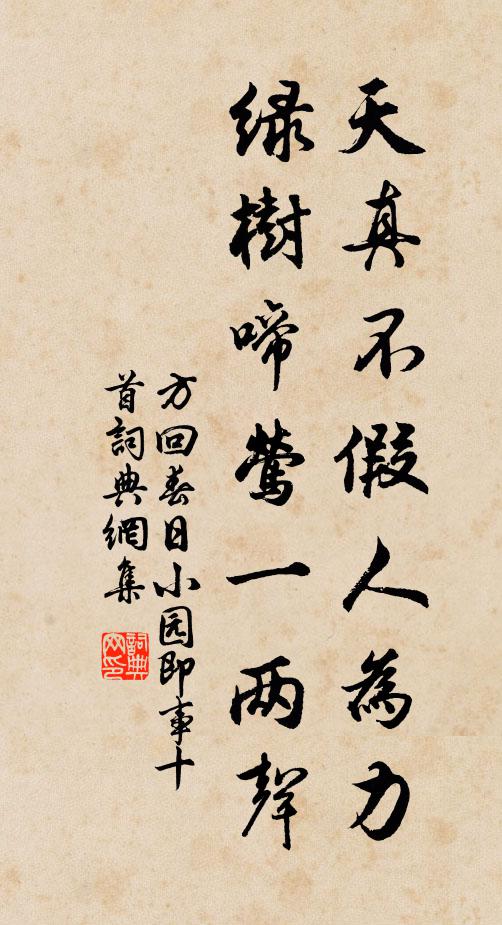 天真不假人為力
綠樹啼鶯一两聲
方回春日小园即事十
首詞典網集
詞典網印